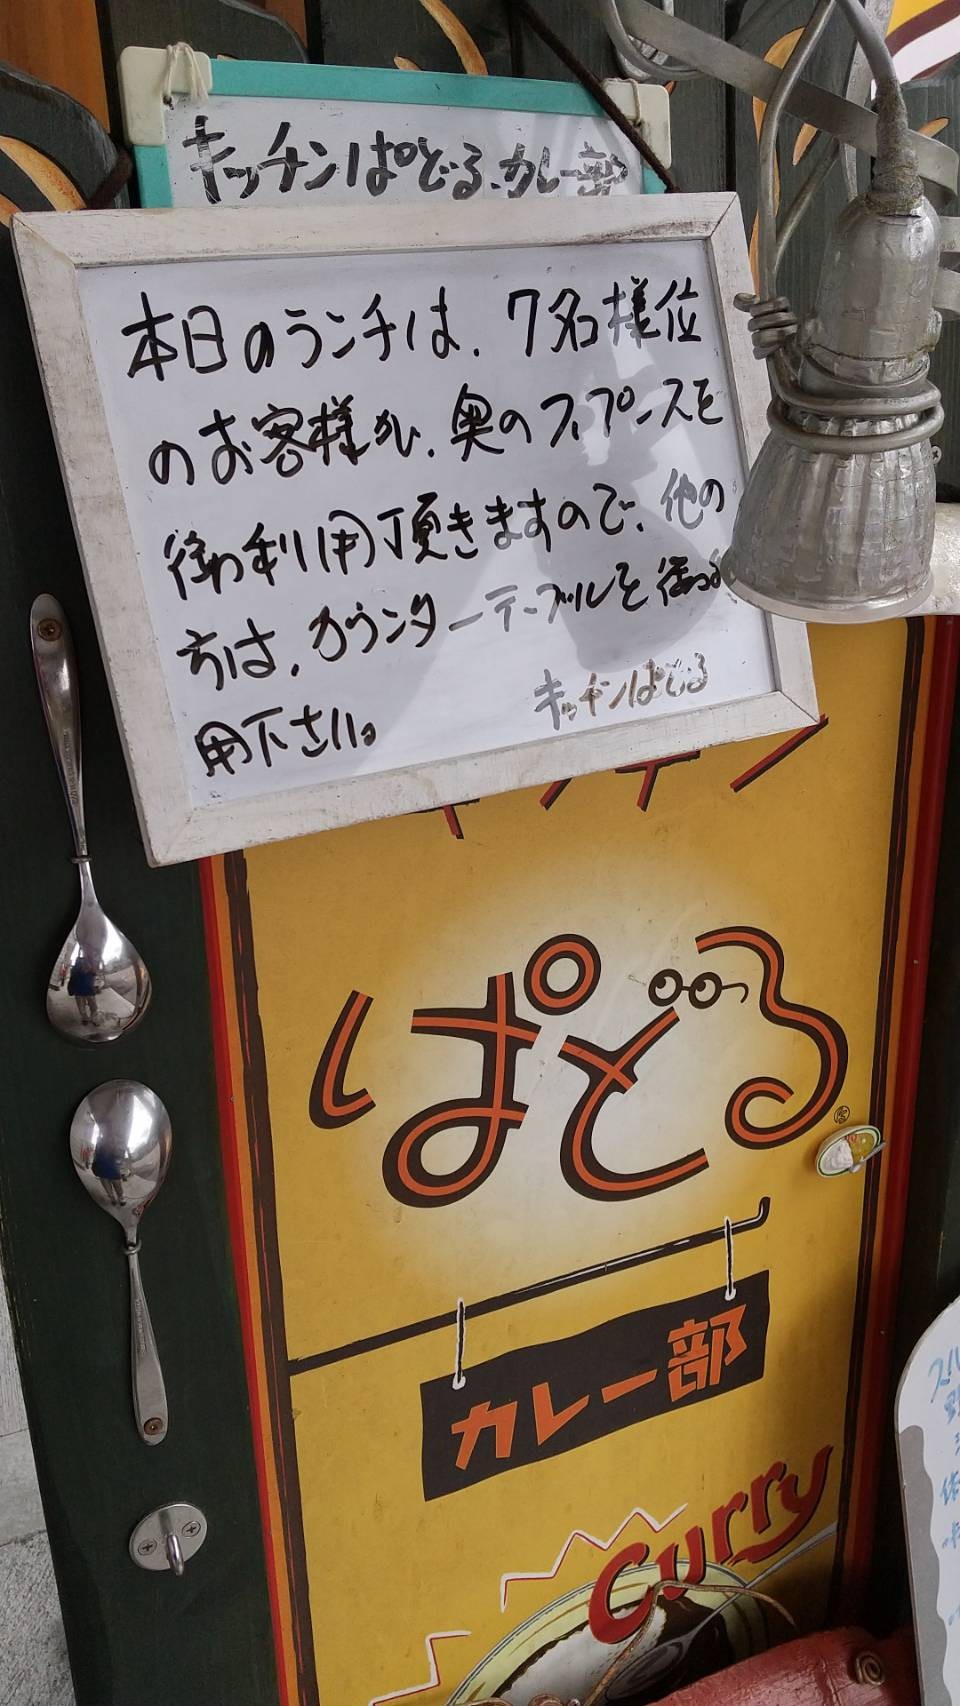 キッチンぱどる.カレー部
本日のランチは、7名様位
のお客様が、奥のスペースを
御利用頂きますので、他の
方は、カウンターテーブルを御利
用下さい。
キッチンぱどる
キッチン
ぱどる
カレー部
Curry